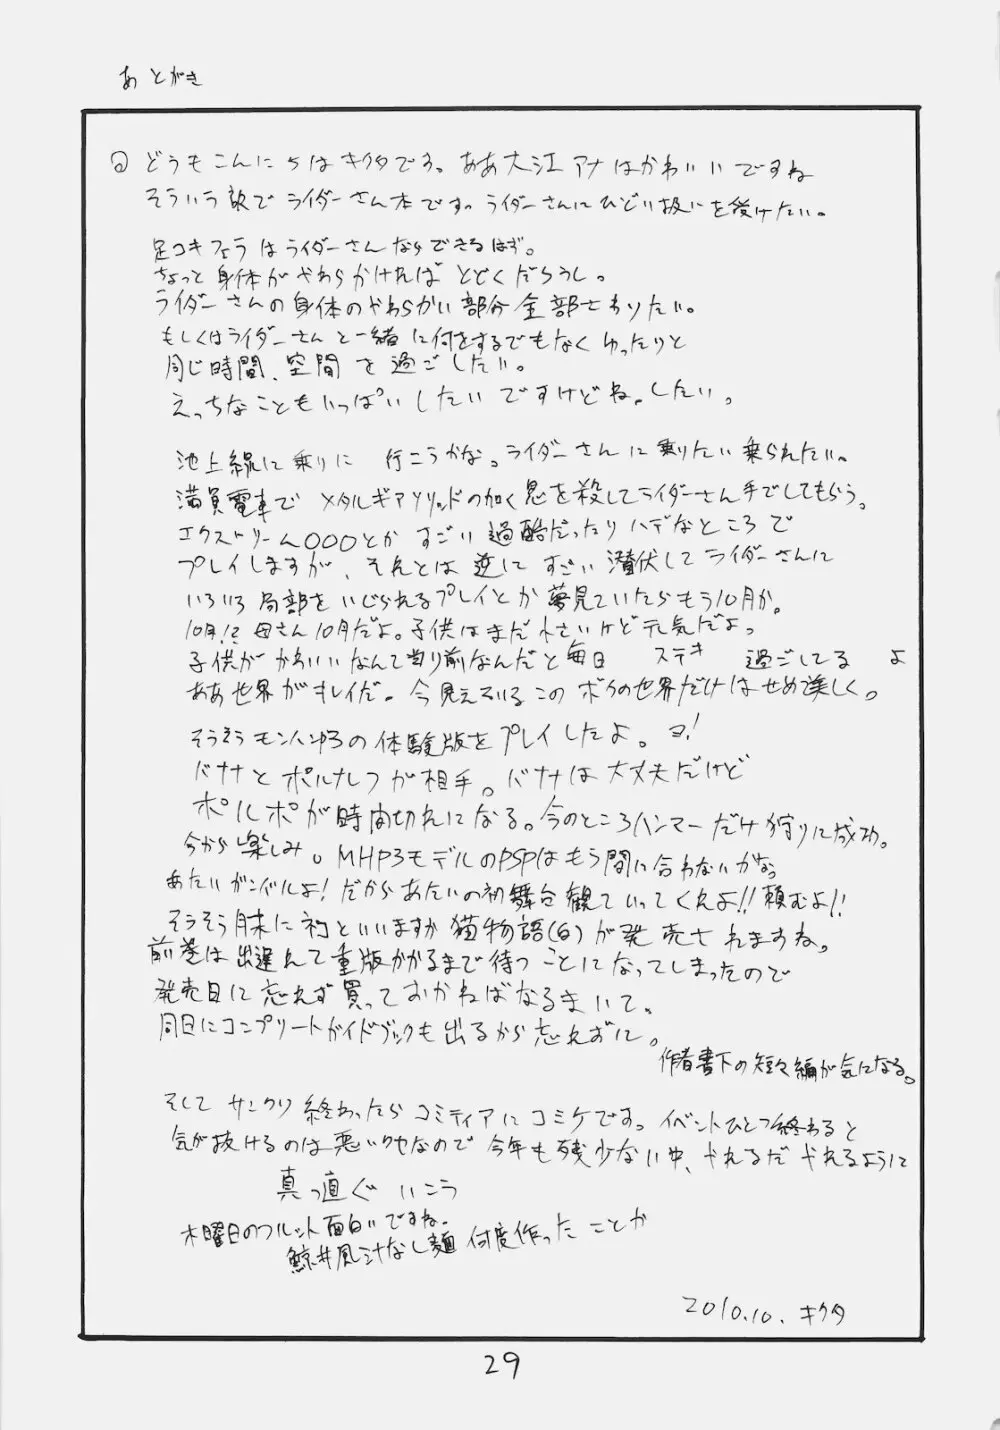 あとがき
どうもこんにちはキクタです。ああ大江アナはかわいいですね
そういう訳でライダーさん本です。ライダーさんにひどい扱いを受けたい。
足コキフェラはライダーさんならできるはず。
ちょっと身体がやわらかければとどくだろうし。
ライダーさんの身体のやわらかい部分全部さわりたい。
もしくはライダーさんと一緒に何をするでもなくゆったりと
同じ時間、空間を過ごしたい。
えっちなこともいっぱいしたいですけどね。したい。
池上線に乗りに 行こうかな。ライダーさんに乗りたい乗られたい。
満員電車でメタルギアソリッドの如く息を殺してライダーさん手でしてもらう。
エクストリーム〇〇〇とかすごい過酷だったりハデなところで
プレイしますが、それとは逆にすごい潜伏してライダーさんに
いろいろ局部をいじられるプレイとか夢見ていたらもう10月か。
10月!?母さん10月だよ。子供はまだ小さいけど元気だよ。
子供がかわいいなんて当り前なんだと毎日 ステキ 過ごしてる よ
ああ世界がキレイだ。今見えているこのボクの世界だけはせめ美しく。
そうそうモンハンの体験版をプレイしたよ。ヨ!
バナナとポルナレフが相手。バナナは大丈夫だけど
ポルポが時間切れになる。今のところハンマーだけ狩りに成功。
今から楽しみ。MHP3モデルのPSPはもう間に合わないかな。
あたいガンバルよ!だからあたいの初舞台観ていってくれよ!!頼むよ!!
そうそう月末に といいますか猫物語(白)が発売されますね。
前巻は出遅れて重版かかるまで待つことになってしまったので
発売日に忘れず買っておかねばなるまいて。
同日にコンプリートガイドブックも出るから忘れずに。
作者書下の短々編が気になる。
そしてサンクリ終わったらコミティアにコミケです。イベントひとつ終わると
気が抜けるのは悪いクセなので今年も残少ない中、ヤれるだヤれるように
真っ直ぐいこう
木曜日のフルット面白いですね。
鯨井風汁なし麺何度作ったことか
2010.10. キクタ
29